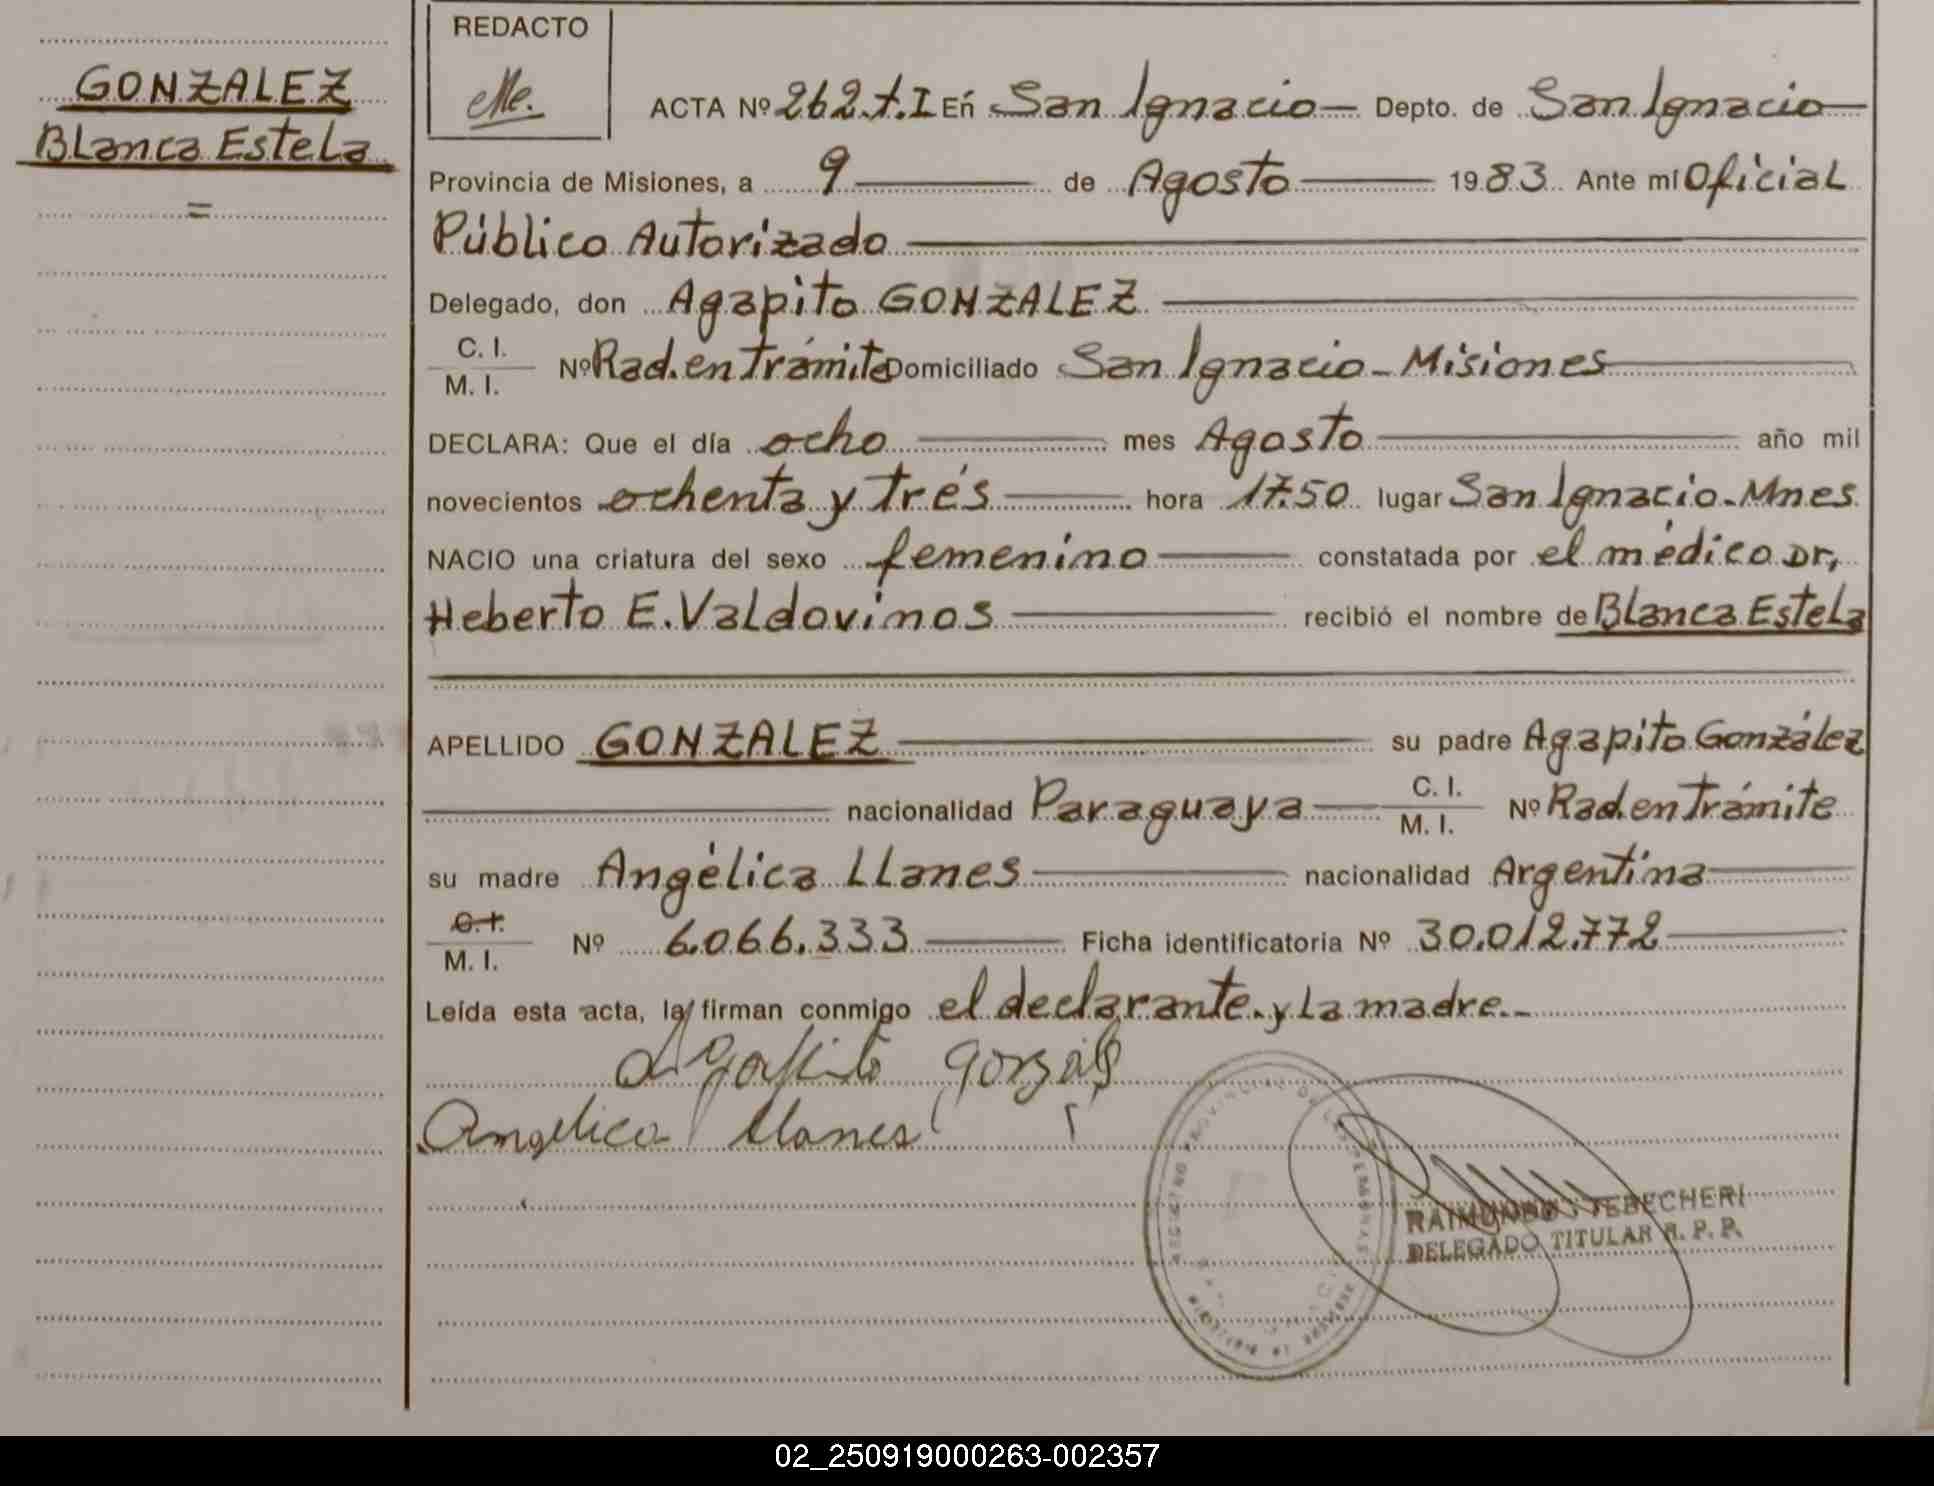 GONZALEZ
Blanca Estela
=
REDACTO
ACTA Nº 262.t.I En San Ignacio — Depto. de San Ignacio —
Provincia de Misiones, a 9 — de Agosto — 1983 Ante mí Oficial
Público Autorizado —
Delegado, don Agapito GONZALEZ —
C. I.
M. I.
Nº Rad. en Trámite Domiciliado San Ignacio - Misiones —
DECLARA: Que el día ocho — mes Agosto — año mil
novecientos ochenta y trés — hora 17.50 lugar San Ignacio - Mnes
NACIO una criatura del sexo femenino — constatada por el médico Dr,
Heberto E. Valdovinos — recibió el nombre de Blanca Estela
APELLIDO GONZALEZ — su padre Agapito González
— nacionalidad Paraguaya — C. I. / M. I. Nº Rad. en Trámite
su madre Angélica Llanes — nacionalidad Argentina —
C. I.
M. I.
Nº 6.066.333 — Ficha identificatoria Nº 30.012.772 —
Leída esta acta, la firman conmigo el declarante y la madre.-
Agapito Gonzáles
Angelica Llanes
REGISTRO PROVINCIAL DE LAS PERSONAS
RAIMUNDO TEBECHERI
DELEGADO TITULAR R. P. P.
02_250919000263-002357